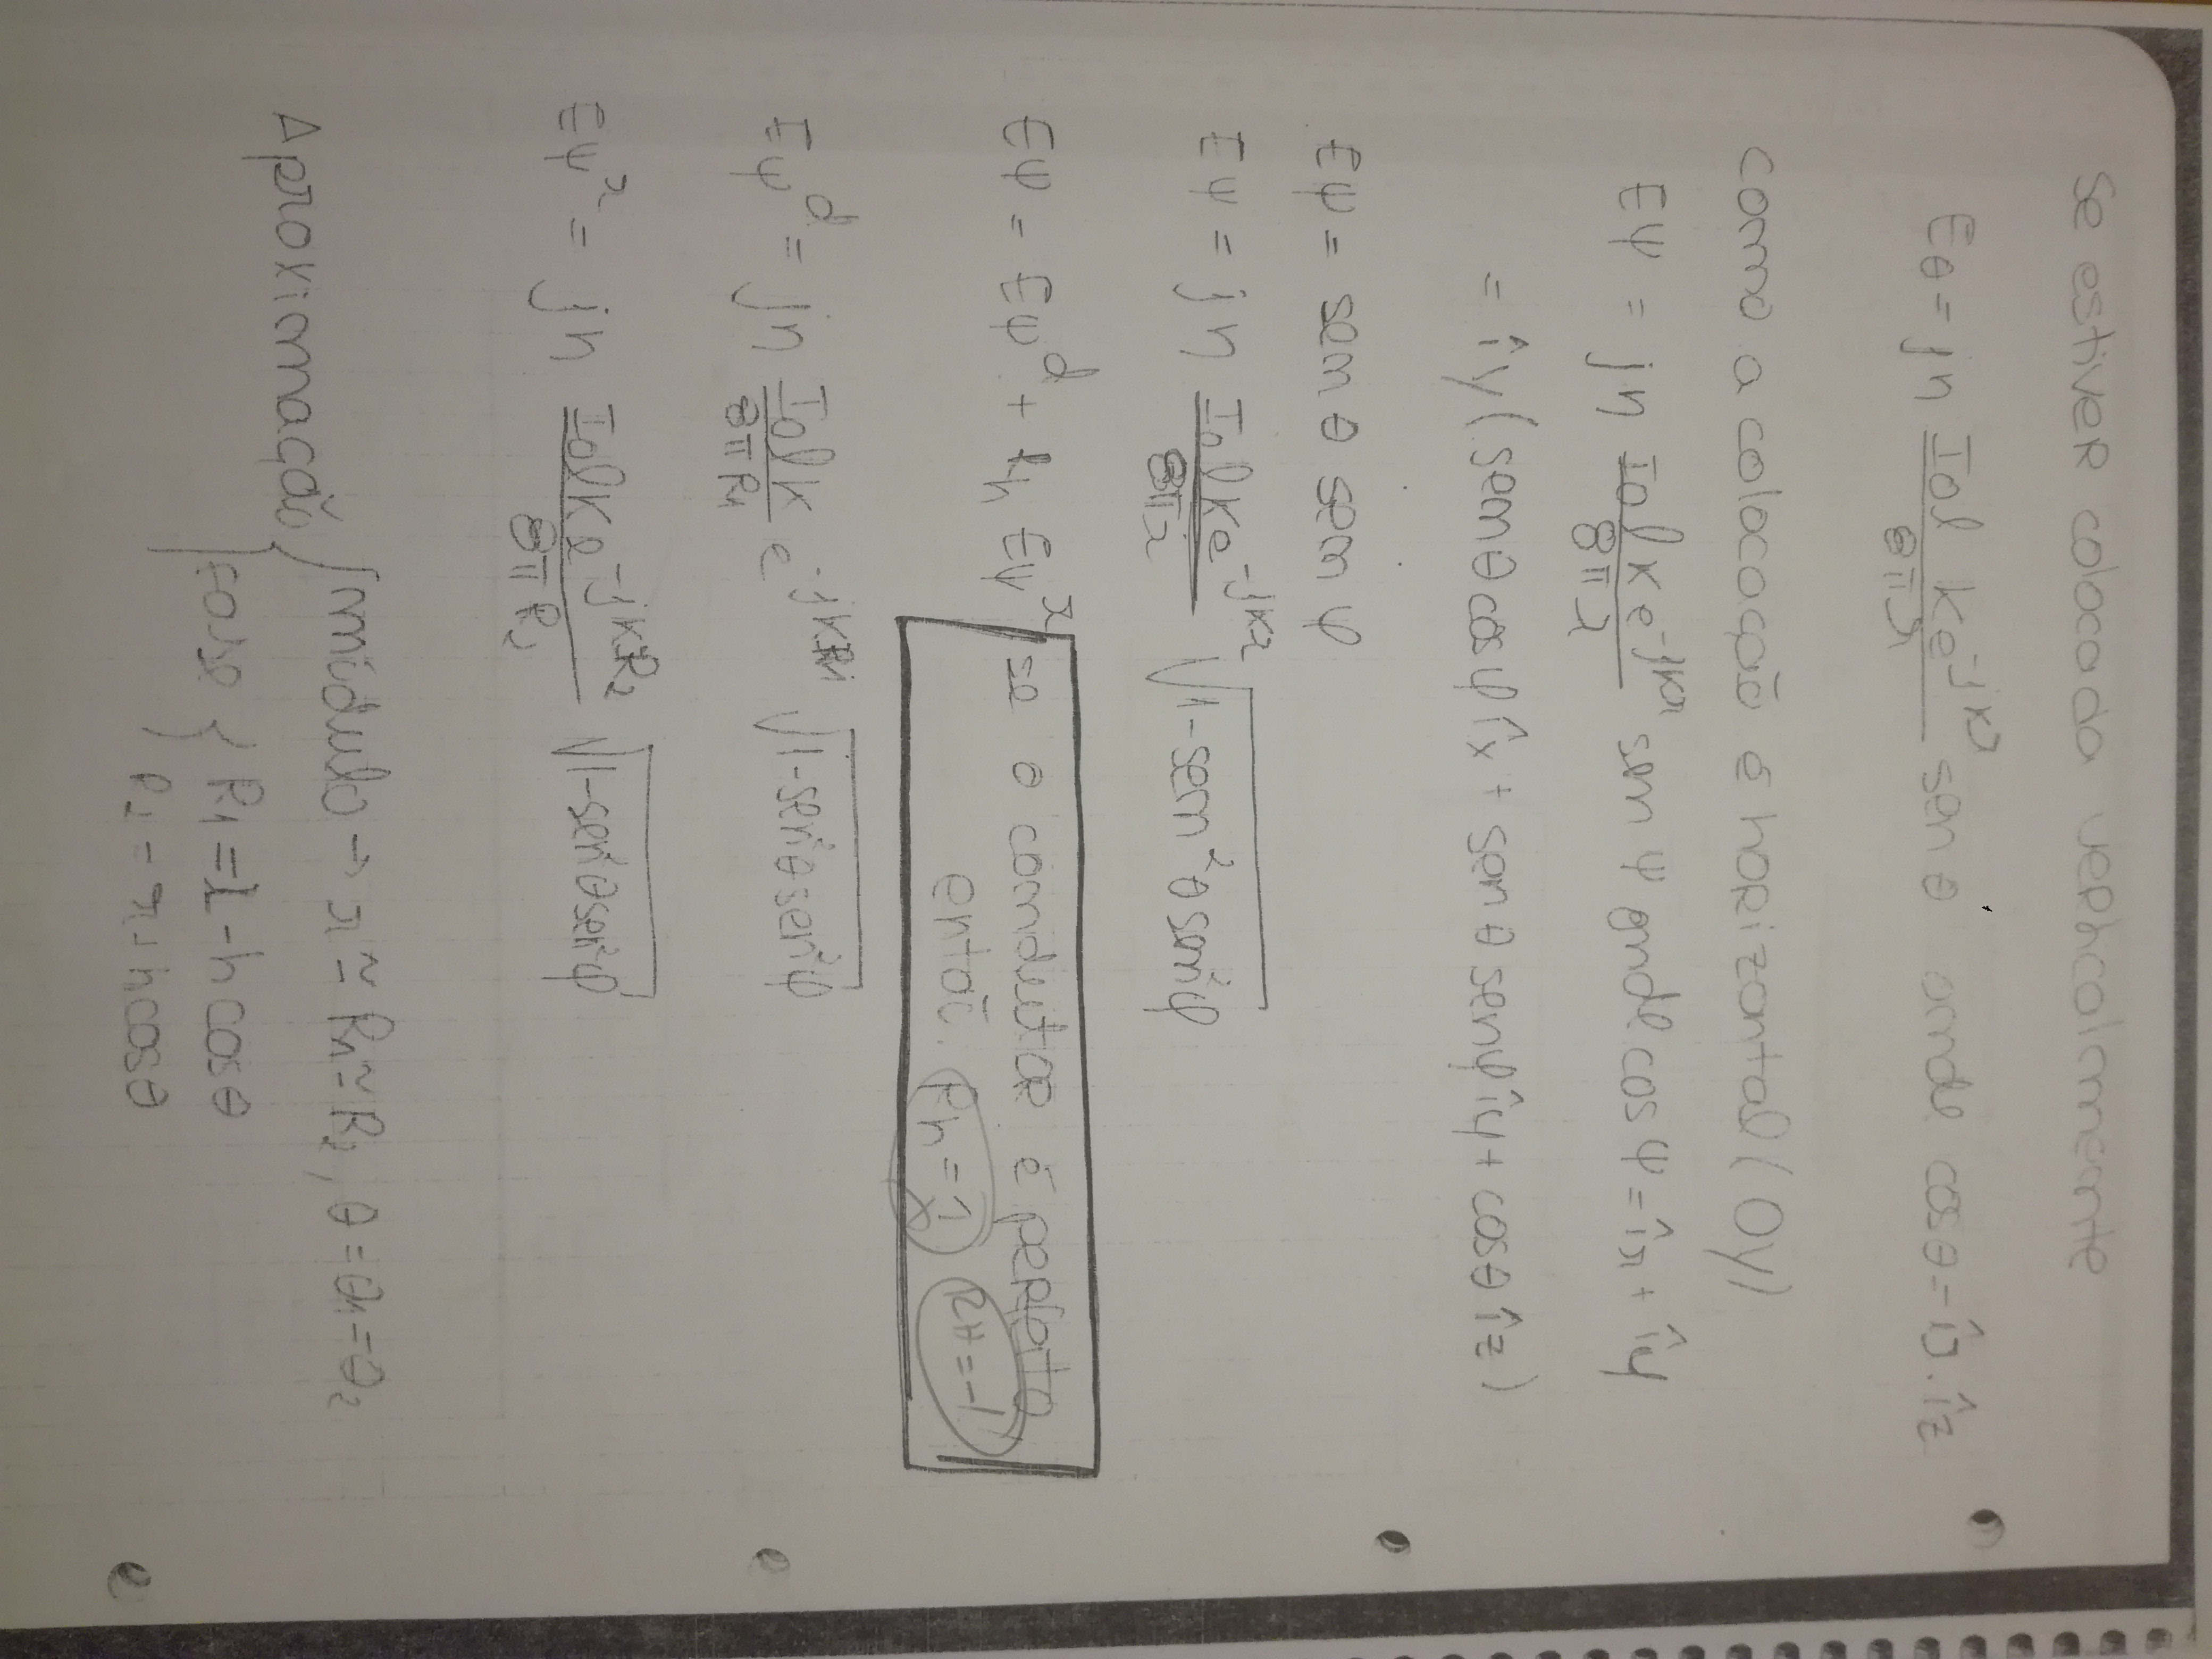 Se estiver colocada verticalmente
Eθ = jη Iol Ke^-jkr / 8πr sen θ onde cos θ = îr . îz
Como a colocação é horizontal (Oy)
Eψ = jη Iol K e^-jkr / 8πr sen ψ onde cos ψ = îr + îy
= îy (sen θ cos φ îx + sen θ sen φ îy + cos θ îz)
Eψ = sen θ sen φ
Eψ = jη Iol Ke^-jkr / 8πr √(1 - sen²θ sen²φ)
Eψ = Eψ^d + Rh Eψ^r se o condutor é perfeito,
então. Rh = 1 RH = -1
Eψ^d = jη Iol K / 8πR1 e^-jKR1 √(1 - sen²θ sen²φ)
Eψ^r = jη Iol Ke^-jKR2 / 8πR2 √(1 - sen²θ sen²φ)
Aproximação { módulo → r ≃ R1 ≃ R2, θ = θ1 = θ2
fase { R1 = r - h cos θ
R2 = r + h cos θ